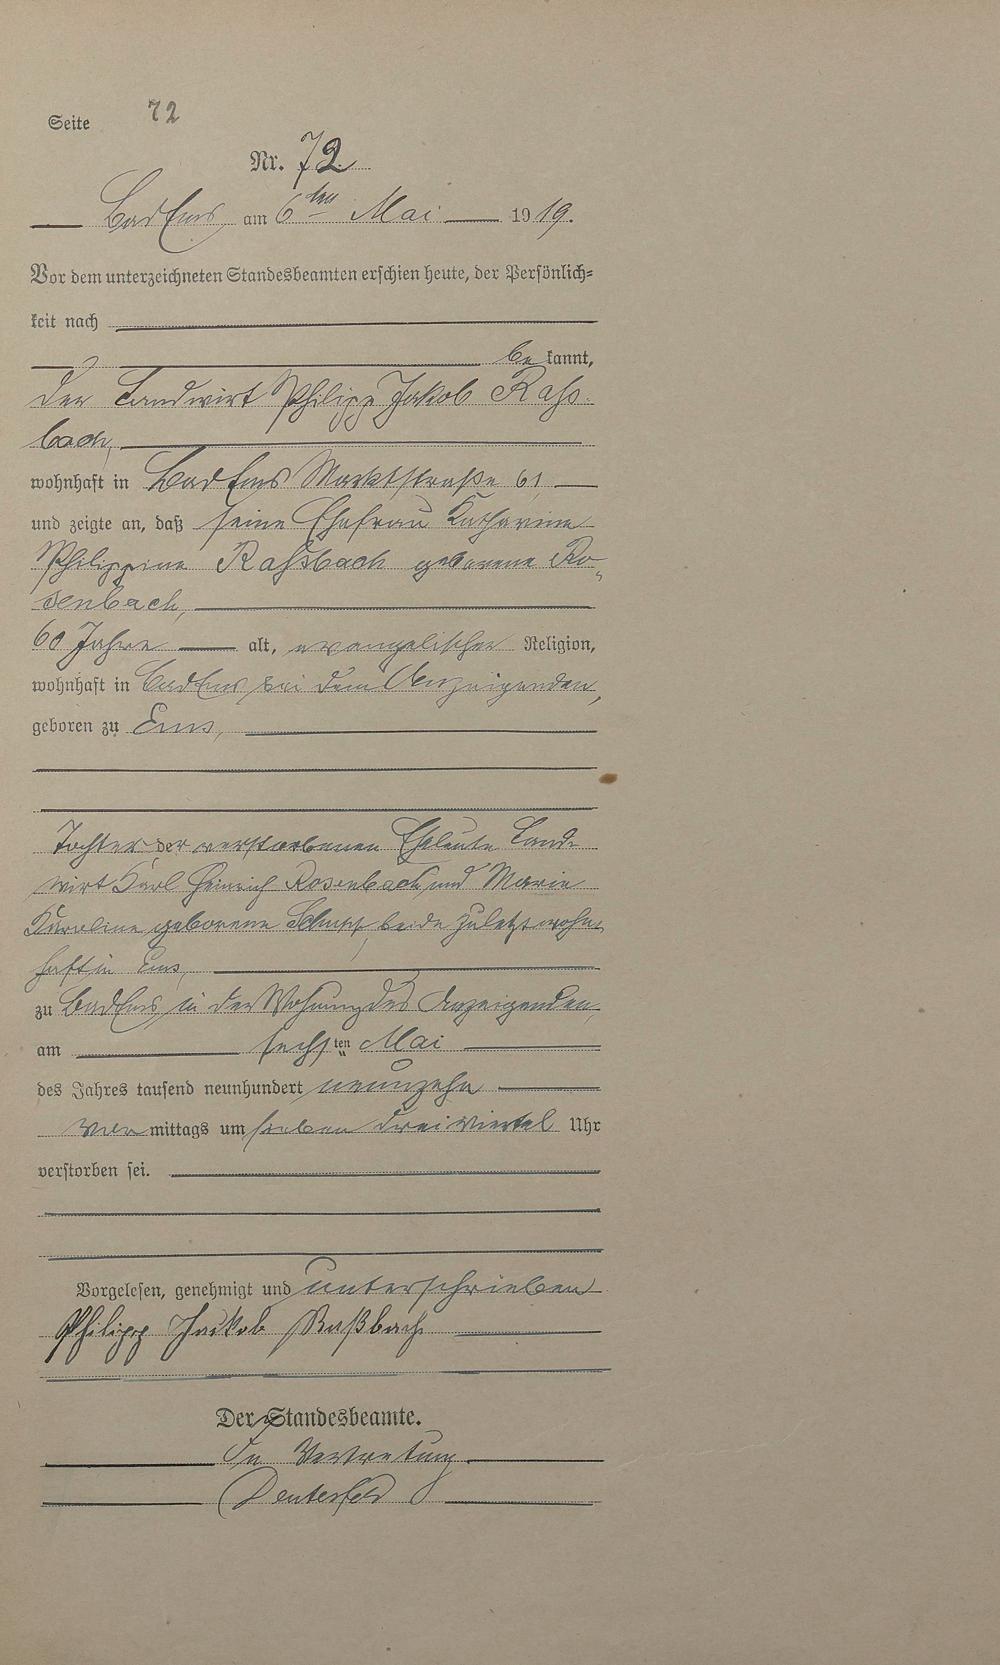 Seite 72
Nr. 72.
Bad Ems, am 6ten Mai 1919.
Vor dem unterzeichneten Standesbeamten erschien heute, der Persönlich=
keit nach
be kannt,
der Landwirt Philipp Jakob Rahs-
bach,
wohnhaft in Bad Ems Marktstraße 61,
und zeigte an, daß seine Ehefrau Katharine
Philippine Rahsbach geborene Ro-
senbach,
60 Jahre alt, evangelischer Religion,
wohnhaft in Bad Ems bei dem Anzeigenden,
geboren zu Ems,
Tochter der verstorbenen Eheleute Land-
wirt Karl Heinrich Rosenbach und Marie
Karoline geborene beide zuletzt wohn-
haft in Ems,
zu Bad Ems, in der Wohnung des Anzeigenden,
am sechsten Mai
des Jahres tausend neunhundert neunzehn
Vor mittags um sieben drei viertel Uhr
verstorben sei.
Vorgelesen, genehmigt und unterschrieben
Philipp Jackob Raßbach
Der Standesbeamte.
In Vertretung